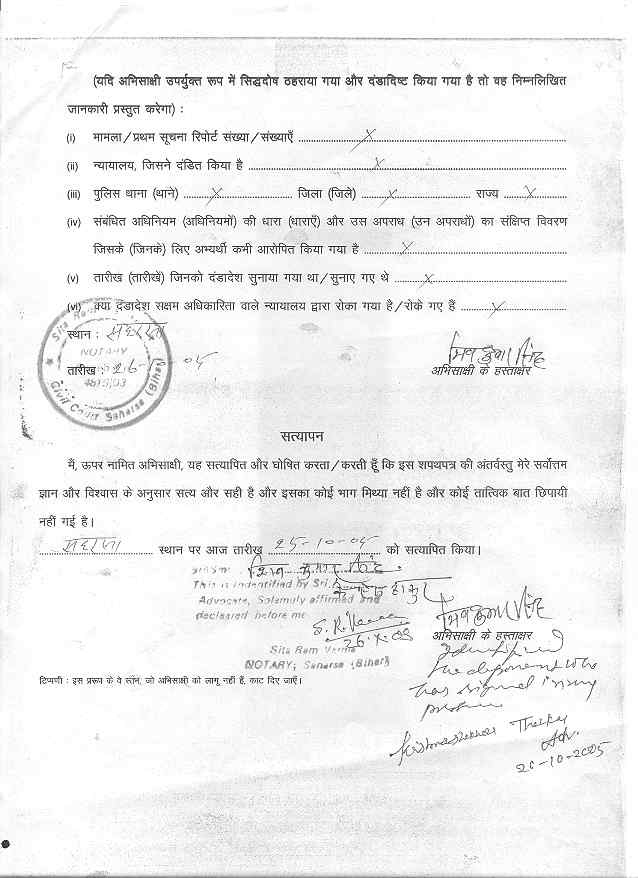 (यदि अभिसाक्षी उपर्युक्त रूप में सिद्धदोष ठहराया गया और दंडादिष्ट किया गया है तो वह निम्नलिखित
जानकारी प्रस्तुत करेगा) :
(i) मामला/प्रथम सूचना रिपोर्ट संख्या/संख्याएँ ........ X ........
(ii) न्यायालय, जिसने दंडित किया है ........ X ........
(iii) पुलिस थाना (थाने) ........ X ........ जिला (जिले) ........ X ........ राज्य ........ X ........
(iv) संबंधित अधिनियम (अधिनियमों) की धारा (धाराएँ) और उस अपराध (उन अपराधों) का संक्षिप्त विवरण
जिसके (जिनके) लिए अभ्यर्थी कभी आरोपित किया गया है ........ X ........
(v) तारीख (तारीखें) जिनको दंडादेश सुनाया गया था/सुनाए गए थे ........ X ........
(vi) क्या दंडादेश सक्षम अधिकारिता वाले न्यायालय द्वारा रोका गया है/रोके गए हैं ........ X ........
स्थान : सहरसा
Sita Ram
NOTARY
Civil Court Saharsa (Bihar)
तारीख :
अभिसाक्षी के हस्ताक्षर
सत्यापन
मैं, ऊपर नामित अभिसाक्षी, यह सत्यापित और घोषित करता/करती हूँ कि इस शपथपत्र की अंतर्वस्तु मेरे सर्वोत्तम
ज्ञान और विश्वास के अनुसार सत्य और सही है और इसका कोई भाग मिथ्या नहीं है और कोई तात्विक बात छिपायी
नहीं गई है।
सहरसा स्थान पर आज तारीख 25-10-05 को सत्यापित किया।
This is indentified by Sri
Advocate, Solamuly affirmed and
declared before me
S. R. Verma
Sita Ram Verma
NOTARY, Saharsa (Bihar)
अभिसाक्षी के हस्ताक्षर
the deponent who
has signed in my
टिप्पणी : इस प्ररूप के वे स्तंभ, जो अभिसाक्षी को लागू नहीं हैं, काट दिए जाएँ।
Adv.